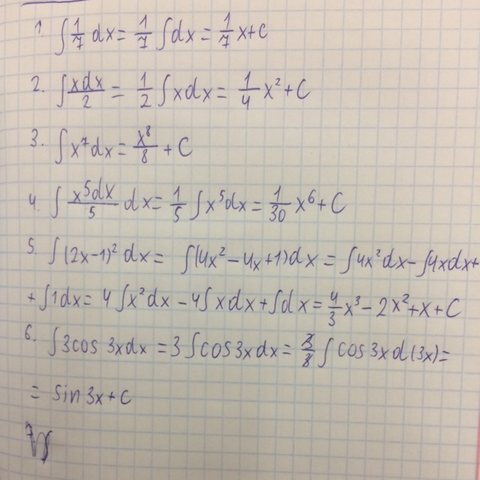 1. ∫ 1/7 dx = 1/7 ∫dx = 1/7 x+C
2. ∫ xdx/2 = 1/2 ∫xdx = 1/4 x² + C
3. ∫x⁷dx = x⁸/8 + C
4. ∫ x⁵dx/5 dx = 1/5 ∫x⁵dx = 1/30 x⁶ + C
5. ∫(2x-1)² dx = ∫(4x²-4x+1)dx = ∫4x²dx-∫4xdx+
+ ∫1dx = 4∫x²dx - 4∫xdx+∫dx = 4/3 x³ - 2x²+x+C
6. ∫3cos 3xdx = 3∫cos3xdx = 3/3 ∫cos3xd(3x) =
= sin3x+C